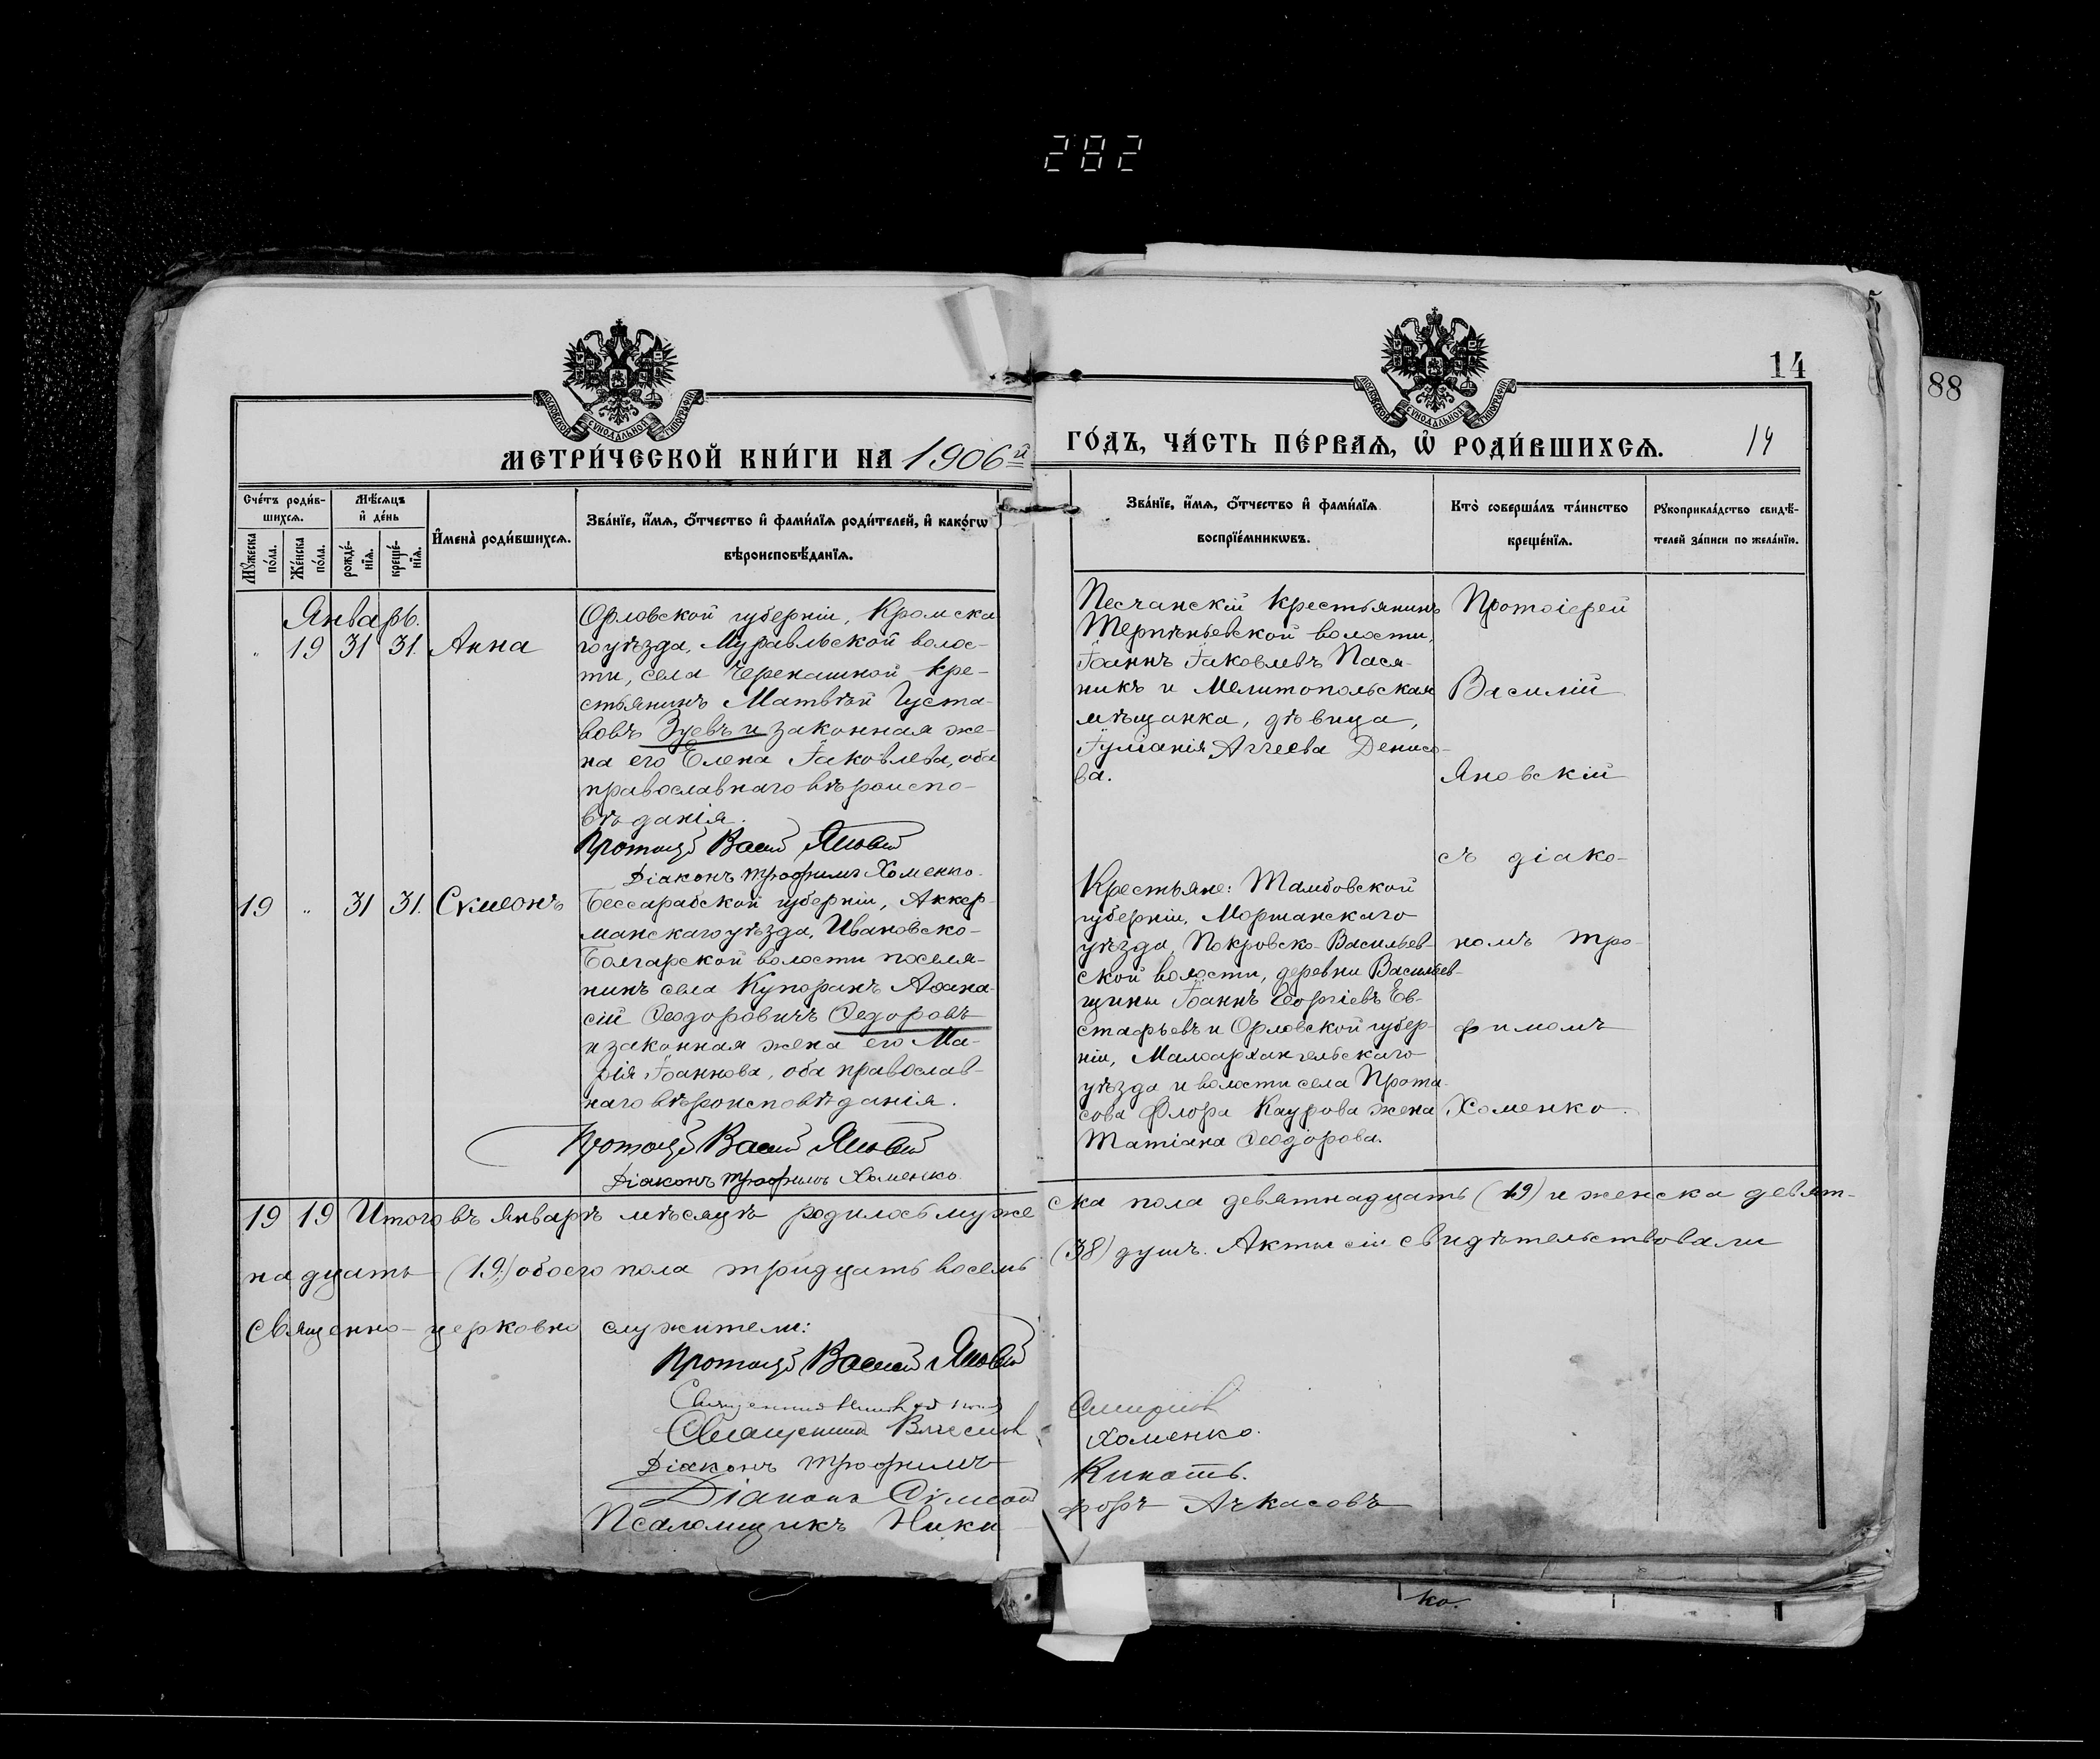 282
14
88
МЕТРИ́ЧЕСКОЙ КНИ́ГИ НА 1906й
ГО́ДЪ, ЧА́СТЬ ПЕ́РВАѦ, Ѡ҆ РОДИ́ВШИХСѦ.
14
Сче́тъ роди́в-
шихсѧ.
Мѣ́сѧцъ
и҆ де́нь
Мꙋ́жеска
по́ла.
Же́нска
по́ла.
рожде́-
нїѧ.
креще́-
нїѧ.
И҆мена̀ роди́вшихсѧ.
Зва́нїе, и҆́мѧ, ѻ҆́тчество и҆ фами́лїѧ роди́телей, и҆ како́гѡ
вѣроисповѣ́данїѧ.
Зва́нїе, и҆́мѧ, ѻ҆́тчество и҆ фами́лїѧ
воспрїе́мникѡвъ.
Кто̀ соверша́лъ та́инство
креще́нїѧ.
Рꙋкоприкла́дство свидѣ́-
телей за́писи по жела́нїю.
Январь.
" 19 31 31. Анна
Орловской губерніи, Кромска
го уѣзда, Муравльской волос-
ти, села Черенашной кре-
стьянинъ Матвѣй Густа-
вовъ Зуевъ и законная же-
на его Елена Іаковлева, оба
православнаго вѣроиспо-
вѣданія.
Діаконъ Трофимъ Хоменко.
Песчанскій крестьянинъ
Терпѣньевской волости,
Іоаннъ Іаковлевъ Пася-
никъ и Мелитопольская
мѣщанка, дѣвица,
Іуліанія Аггеева Денисо-
ва.
Протоіерей
Василій
Яновскій
съ діако-
номъ Тро-
фимомъ
Хоменко.
19 " 31 31. Сѵмеонъ
Бессарабской губерніи, Аккер-
манскаго уѣзда, Ивановско-
Болгарской волости поселя-
нинъ села Купоранъ Аѳана-
сій Ѳеодоровичъ Ѳедоровъ
и законная жена его Ма-
рія Іоаннова, оба православ-
наго вѣроисповѣданія.
Діаконъ Трофимъ Хоменко.
Крестьяне: Тамбовской
губерніи, Моршанскаго
уѣзда, Покровско-Васильев-
ской волости, деревни Васильев-
щины Іоаннъ Георгіевъ Ев-
стафьевъ и Орловской губер-
ніи, Малоархангельскаго
уѣзда и волости села Прота-
сова Флора Каурова жена
Татіана Ѳеодорова.
19 19 Итого въ Январѣ мѣсяцѣ родилось муже ска пола девятнадцать (19) и женска девят-
надцать (19) обоего пола тридцать восемь (38) душъ. Акты сіи свидѣтельствовали
Священно-церковно служители:
Священникъ
Діаконъ Трофимъ Хоменко.
Діаконъ Сѵмеонъ
Псаломщикъ Ники форъ Ачкасовъ
ко.